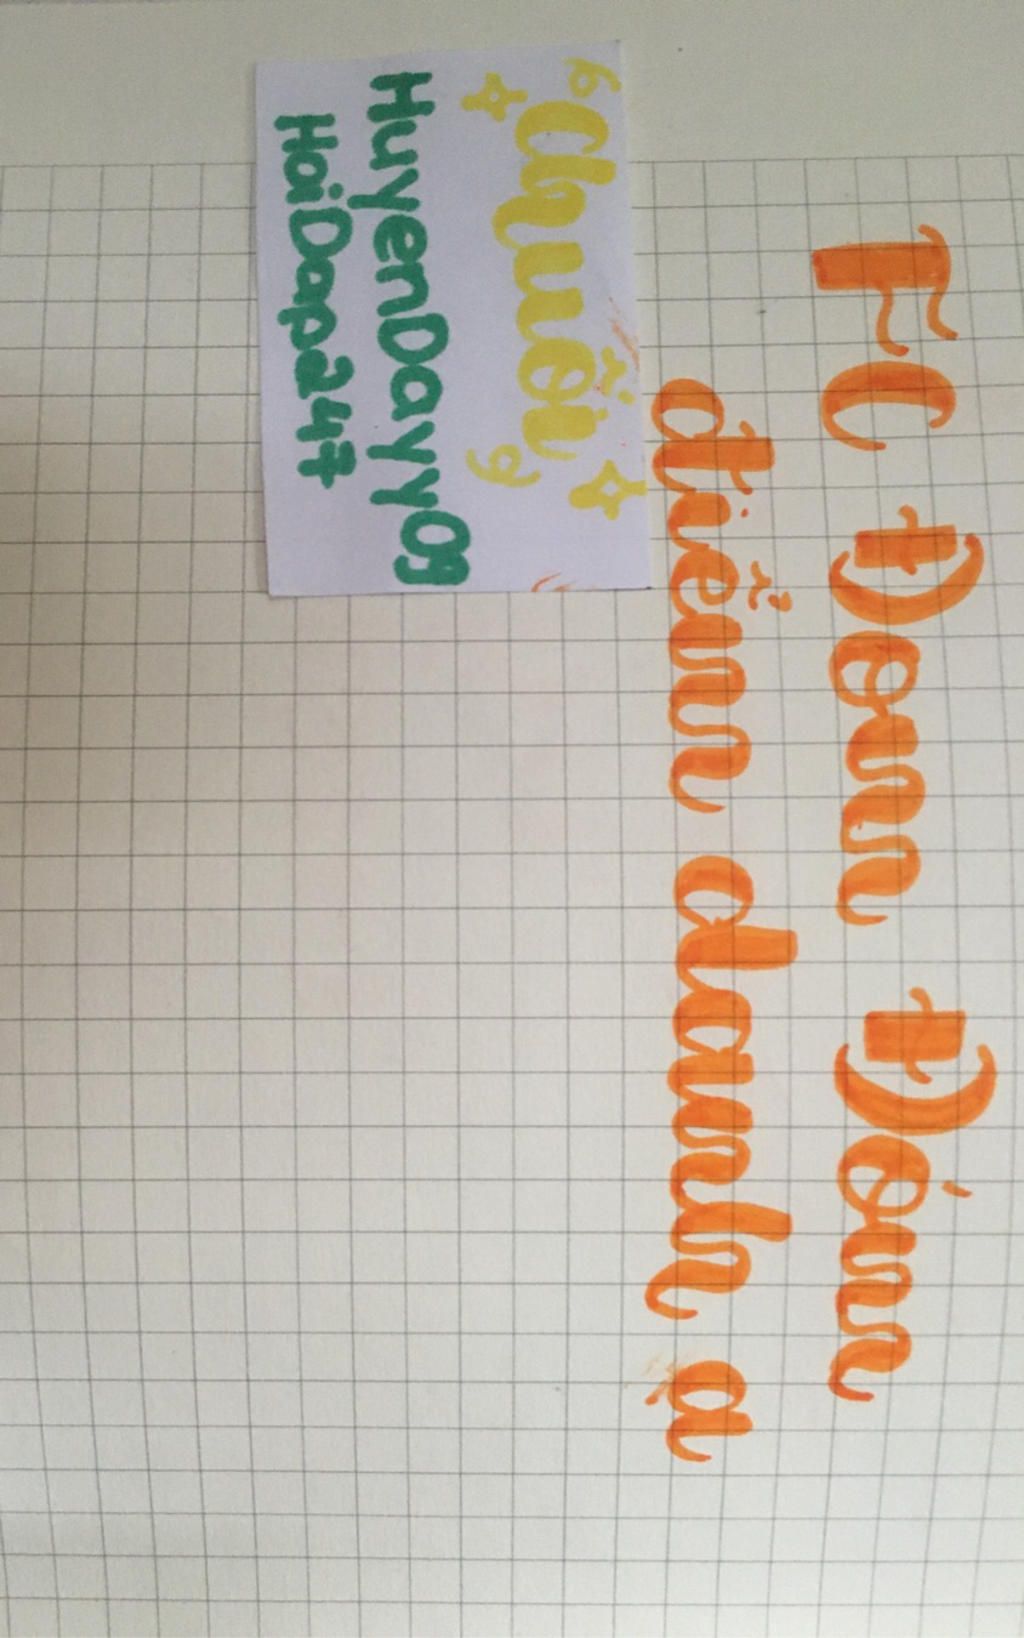 FC Đơn Đón
điễn danh ạ
Chuối
HuyenDayy09
HoiDap247